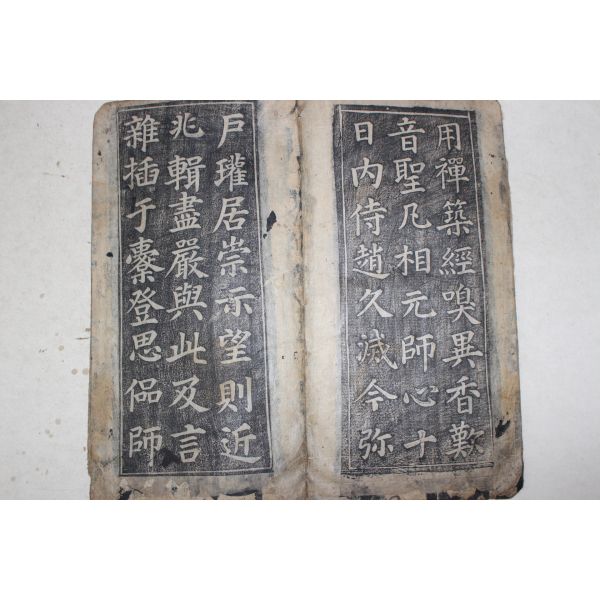 用禪築經嗅異香歎
音聖凡相元師心十
日內侍趙久滅今弥
戶瓘居崇示望則近
兆輯盡嚴與此及言
雜插于槖登思侣師